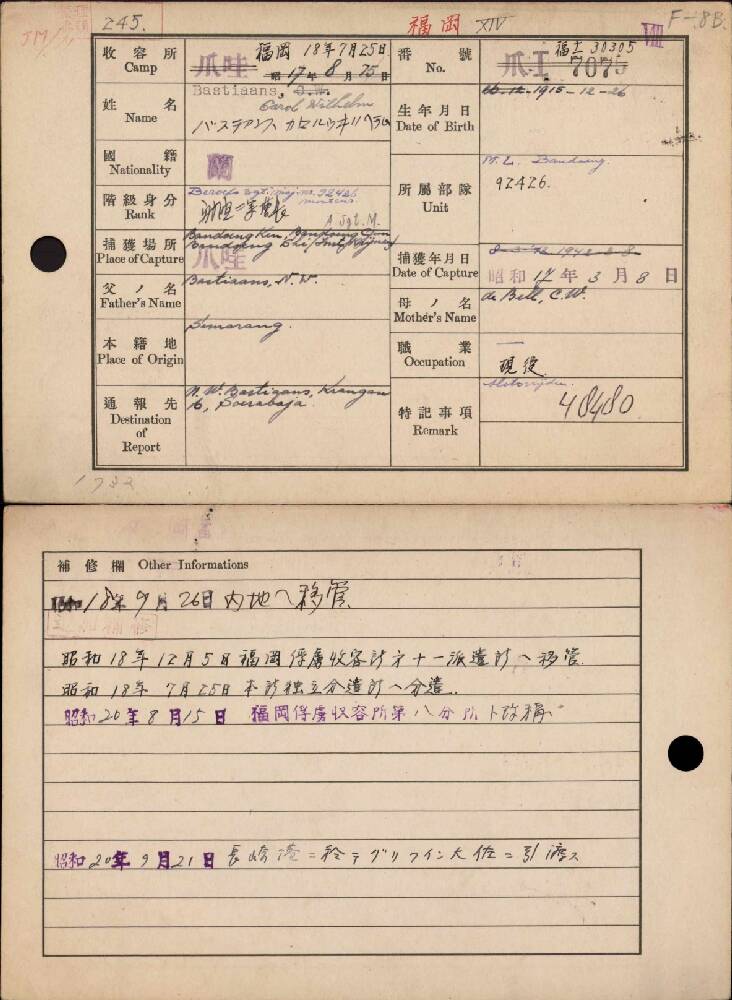 245.
福岡 XIV
VIII
F-8B.
收容所 Camp
爪哇
福岡 18年7月25日
昭 17年8月15日
番號 No.
福主 30305
爪工 7075
姓名 Name
Bastiaans, C.W.
Carol Wilhelm
バスチアンス カロルウヰリヘルム
生年月日 Date of Birth
1915-12-26
國籍 Nationality
蘭
階級身分 Rank
A Sgt. M.
所屬部隊 Unit
M.L. Bandoeng
92426.
捕獲場所 Place of Capture
爪哇
捕獲年月日 Date of Capture
昭和 17年 3月 8日
父ノ名 Father's Name
Bastiaans, N.W.
母ノ名 Mother's Name
de Bell, C.W.
本籍地 Place of Origin
Semarang.
職業 Occupation
現役
通報先 Destination of Report
N.W. Bastiaans, Krangan
6, Soerabaja.
特記事項 Remark
48480.
1732
補修欄 Other Informations
昭和18年9月26日内地へ移管
昭和18年12月5日福岡俘虜收容所第十一派遣所へ移管
昭和18年7月25日本所独立分遣所へ分遣.
昭和20年8月15日 福岡俘虜収容所第八分所ト改稱
昭和20年9月21日長崎港ニ於テグリフイン大佐ニ引渡ス